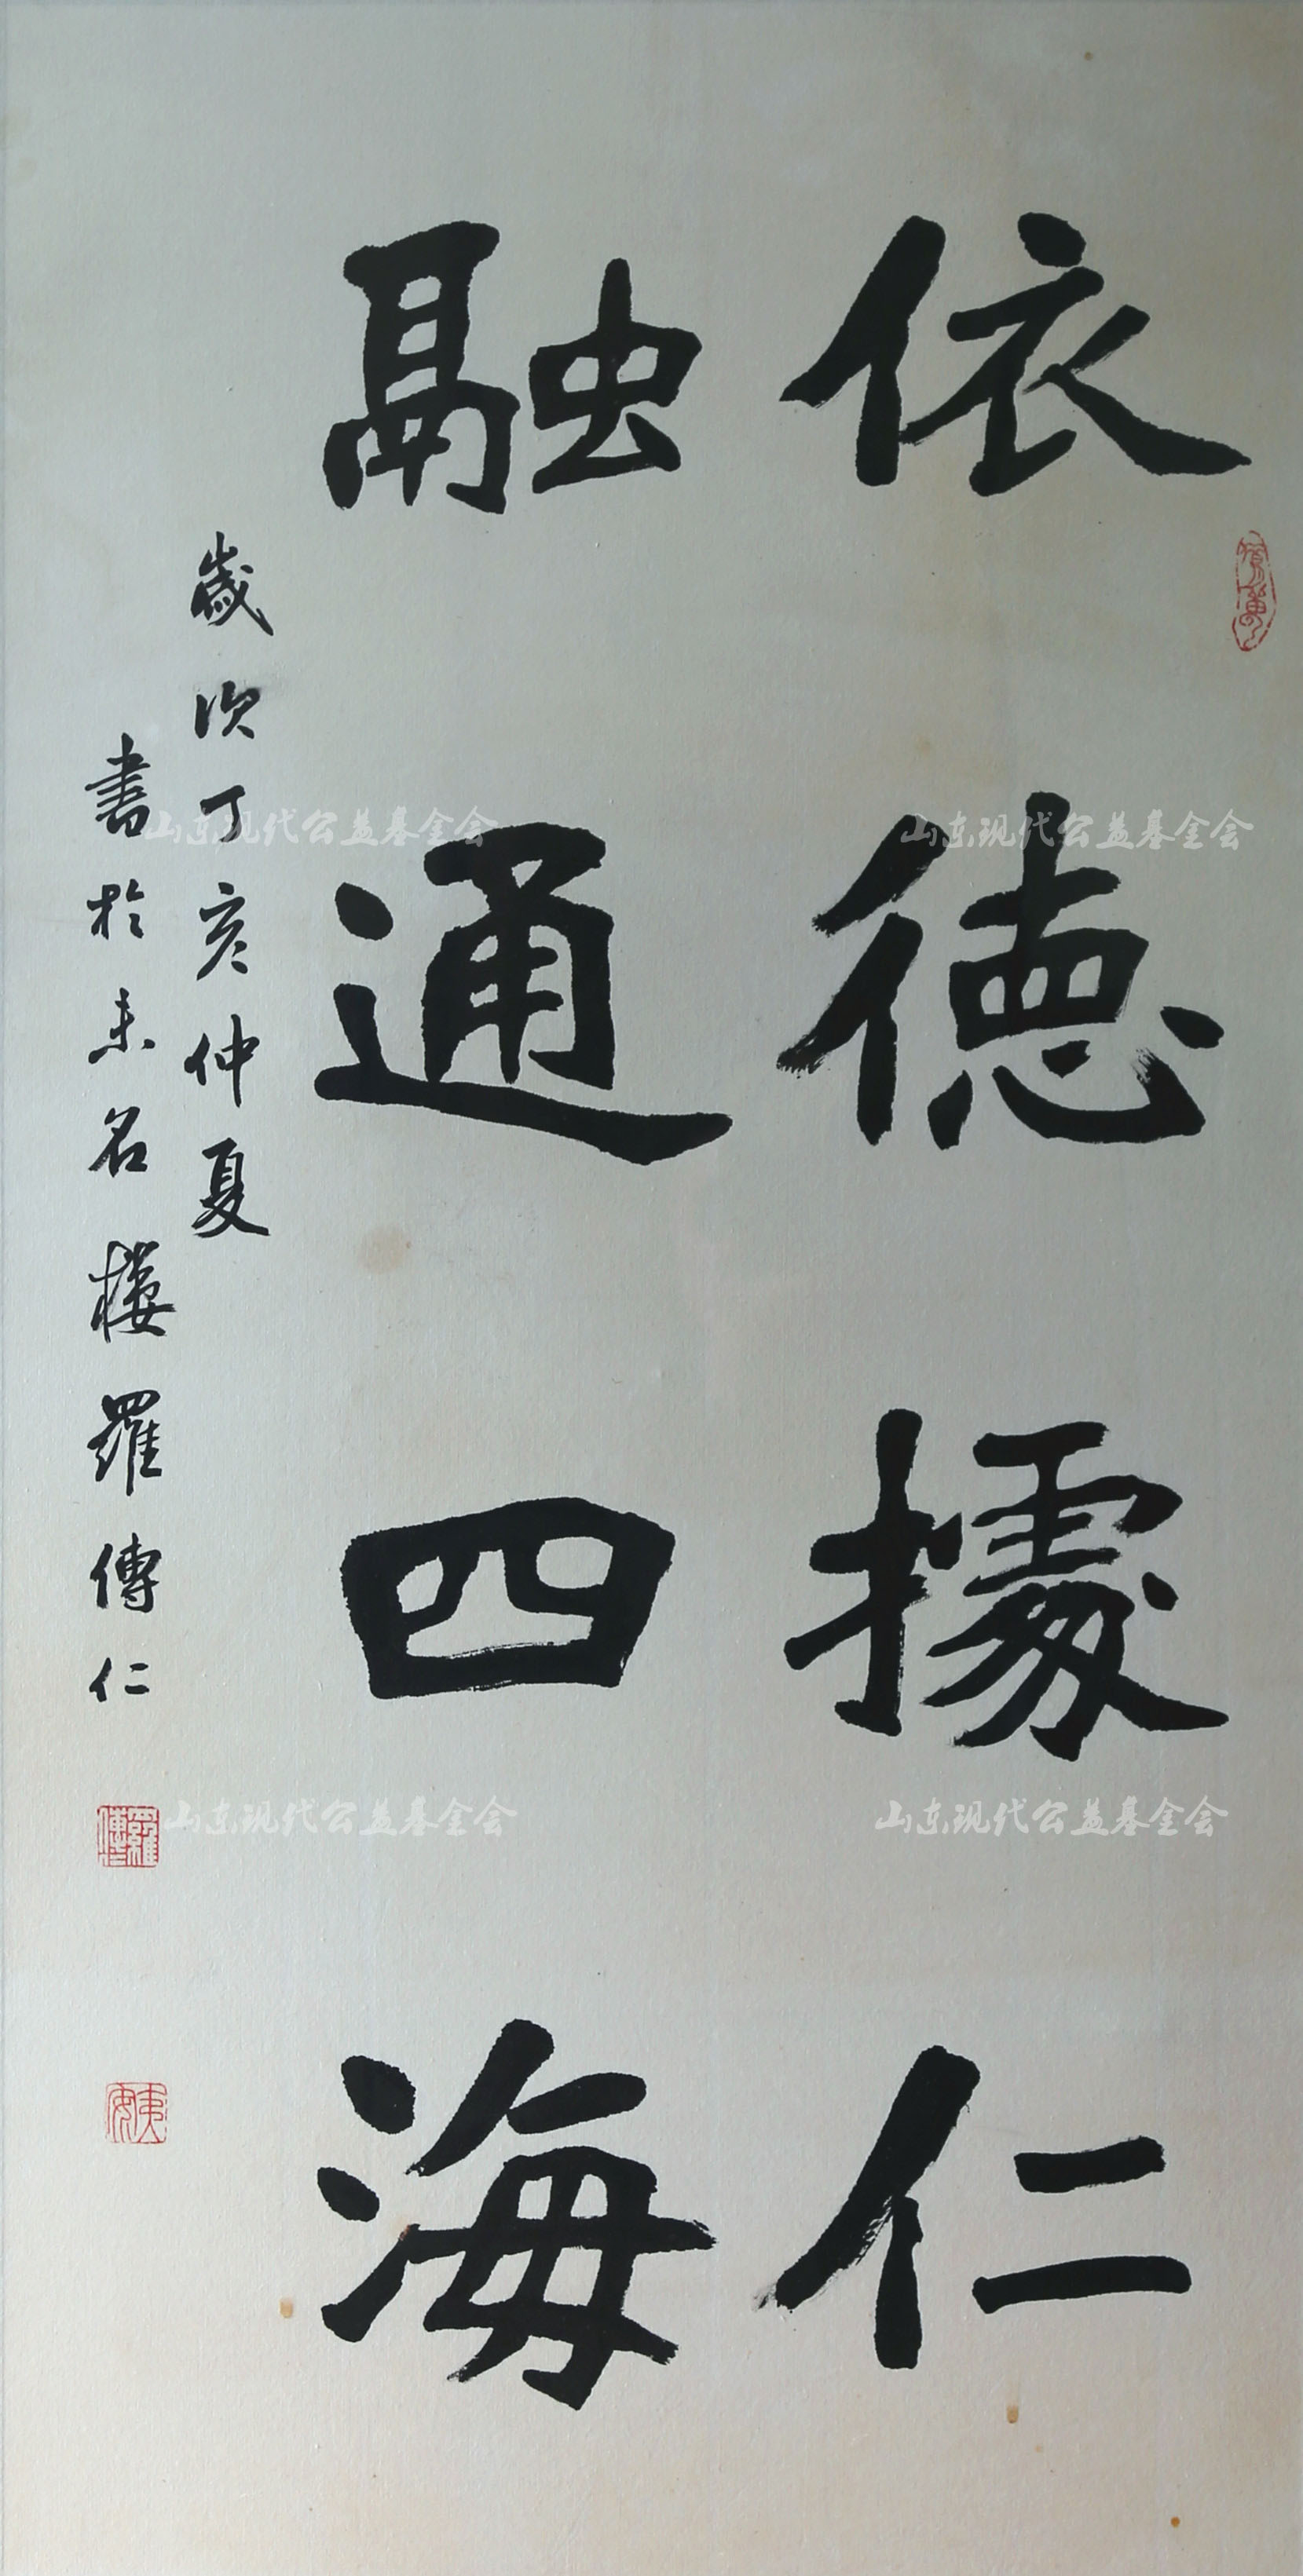 依德據仁
融通四海
歲次丁亥仲夏
書於未名樓羅傳仁
山东现代公益基金会
山东现代公益基金会
山东现代公益基金会
山东现代公益基金会